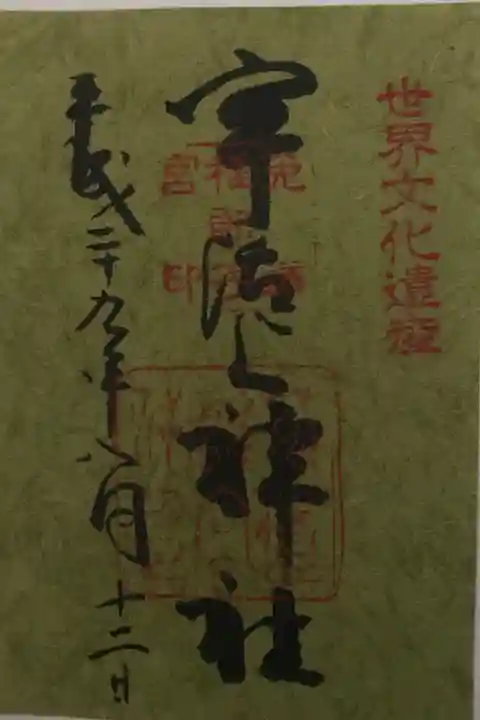 世界文化遺産
宇治上神社
平成二十九年八月十二日